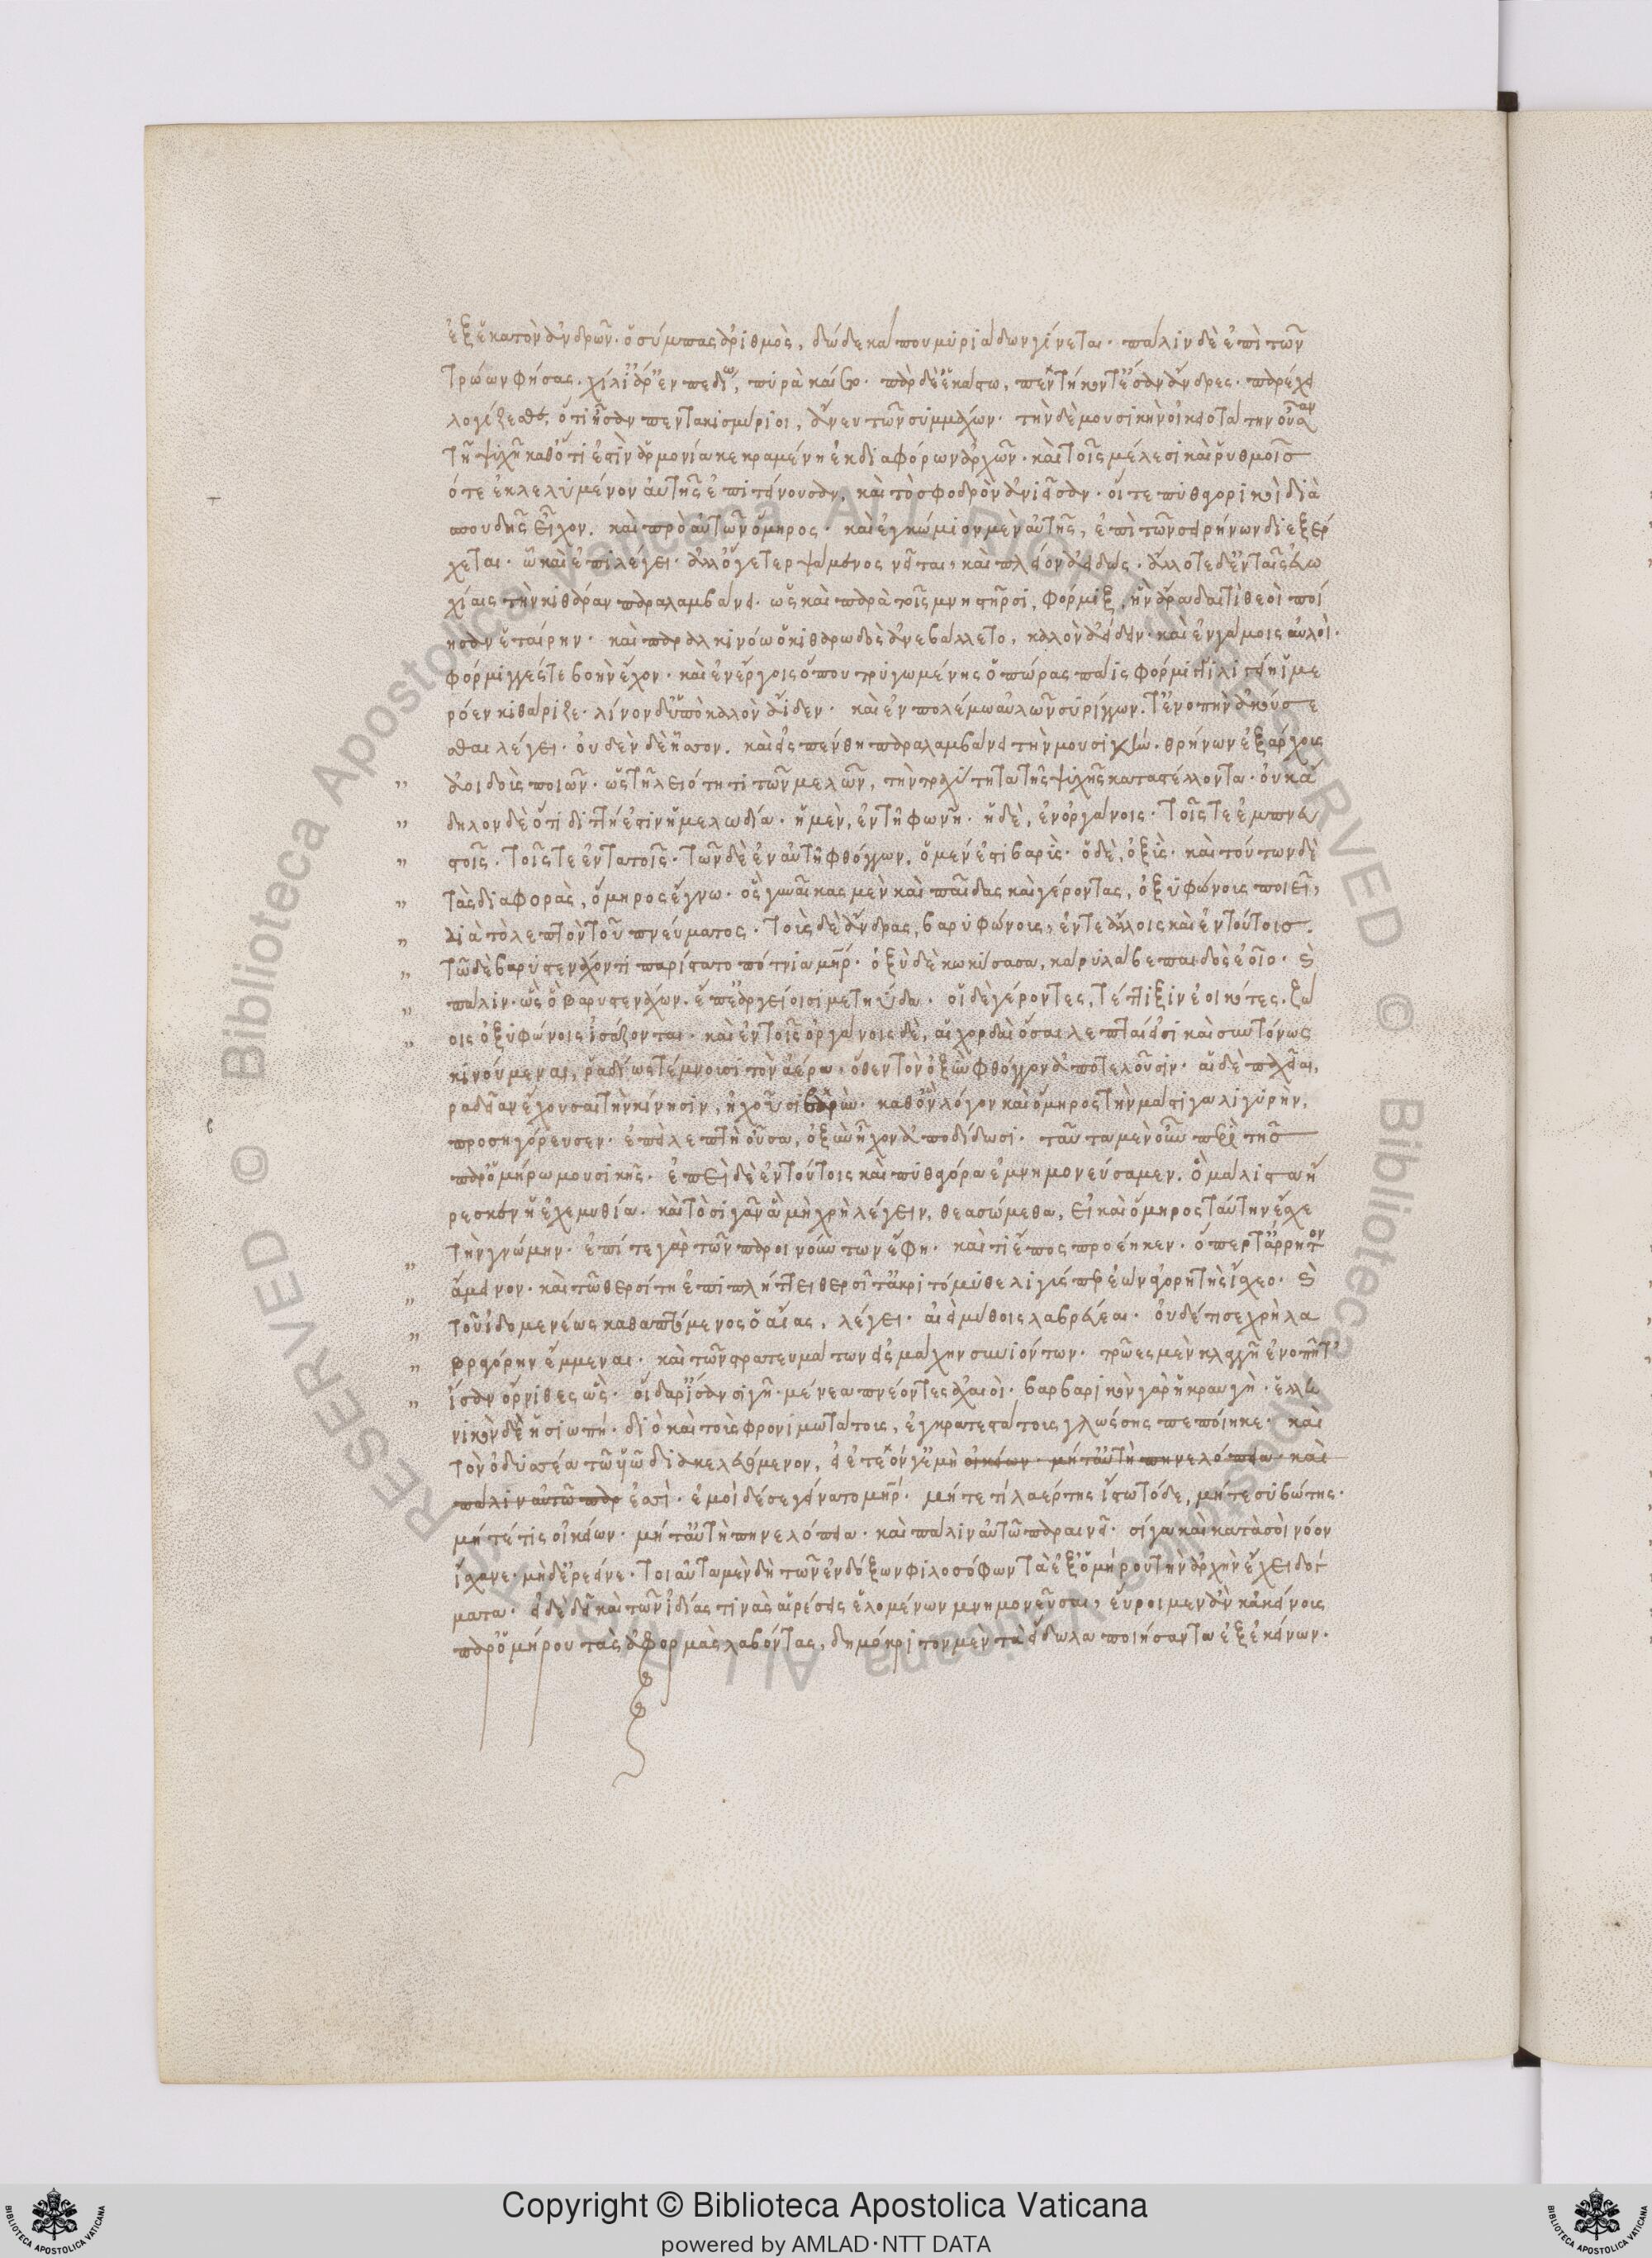 ἐξ ἑκατὸν ἀνδρῶν. ὁ σύμπας ἀριθμὸς, δώδεκά που μυριάδων γίνεται. πάλιν δὲ ἐπὶ τῶν
Τρώων φήσας. χίλι' ἄρ' ἐν πεδίῳ, πυρὰ καίετο. παρ δὲ ἑκάστῳ, πεντήκοντ' ἔσαν ἄνδρες. παρέχει
λογίζεσθαι, ὅτι ἦσαν πεντακισμύριοι, ἄνευ τῶν συμμάχων. τὴν δὲ μουσικὴν οἰκειοτάτην οὖσαν
τῇ ψυχῇ καθότι ἐστὶν ἁρμονία κεκραμένη ἐκ διαφόρων ἀρχῶν. καὶ τοῖς μέλεσι καὶ ῥυθμοῖς
ὅτε ἐκλελυμένον αὐτῆς ἐπιτείνουσαν, καὶ τὸ σφοδρὸν ἀνιεῖσαν. οἵ τε πυθαγορικοὶ διὰ
σπουδῆς εἶχον. καὶ πρὸ αὐτῶν ὅμηρος. καὶ ἐγκώμιον μὲν αὐτῆς, ἐπὶ τῶν σειρήνων διεξέρ
χεται. ᾧ καὶ ἐπιλέγει. ἀλλ' ὅγε τερψάμενος νεῖται, καὶ πλείονα εἰδώς. ἄλλοτε δ' ἐν ταῖς εὐω
χίαις τὴν κιθάραν παραλαμβάνει. ὡς καὶ παρὰ τοῖς μνηστῆρσι, φόρμιξ, ἣν ἄρα δαιτὶ θεοὶ ποί
ησαν ἑταίρην. καὶ παρ ἀλκινόω ὁ κιθαρωδὸς ἀνεβάλλετο, καλὸν ἀείδειν. καὶ ἐν γάμοις αὐλοὶ.
φόρμιγγές τε βοὴν ἔχον. καὶ ἐν ἔργοις ὅπου τρυγωμένης ὀπώρας παῖς φόρμιγγι λιγείῃ ἱμε
ρόεν κιθάριζε. λίνον δ' ὑπὸ καλὸν ἄειδεν. καὶ ἐν πολέμω αὐλῶν συρίγγων τ' ἐνοπὴν ἀκούε
σθαι λέγει. οὐδὲν δὲ ἧττον. καὶ εἰς πένθη παραλαμβάνει τὴν μουσικὴν. θρήνων ἐξάρχους
ἀοιδοὺς ποιῶν. ὡς τῇ λειότητι τῶν μελῶν, τὴν τραχύτητα τῆς ψυχῆς καταστέλλοντα. οὐκ ἄ
δηλον δὲ ὅτι διττή ἐστιν ἡ μελωδία. ἡ μὲν, ἐν τῇ φωνῇ. ἡ δὲ, ἐν ὀργάνοις. τοῖς τε ἐμπνευ
στοῖς. τοῖς τε ἐντατοῖς. τῶν δὲ ἐν αὐτῇ φθόγγων, ὁ μέν ἐστι βαρὺς. ὁ δὲ, ὀξὺς. καὶ τούτων δὲ
τὰς διαφορὰς, ὅμηρος ἔγνω. ὃς γυναῖκας μὲν καὶ παῖδας καὶ γέροντας, ὀξυφώνους ποιεῖ,
διὰ τὸ λεπτὸν τοῦ πνεύματος. τοὺς δὲ ἄνδρας, βαρυφώνους, ἔν τε ἄλλοις καὶ ἐν τούτοις.
τῷ δὲ βαρυστενάχοντι παρίστατο πότνια μῆρ. ὀξὺ δὲ κωκύσασα, κάρη λάβε παιδὸς ἑοῖο. καὶ
πάλιν. ὣς ὁ βαρυστενάχων. ἔπε' ἀργείοισι μετηύδα. οἱ δὲ γέροντες, τέττιξιν ἐοικότες. ζώ
οις ὀξυφώνοις ἰσάζονται. καὶ ἐν τοῖς ὀργάνοις δὲ, αἱ χορδαὶ ὅσαι λεπταί εἰσι καὶ συντόνως
κινούμεναι, ῥαδίως τέμνουσι τὸν ἀέρα, ὅθεν τὸν ὀξὺν φθόγγον ἀποτελοῦσιν. αἱ δὲ παχεῖαι,
βραδεῖαν ἔχουσαι τὴν κίνησιν, ἠχοῦσι βαρὺ. καθ' ὃν λόγον καὶ ὅμηρος τὴν μάστιγα λιγυρὴν,
προσηγόρευσεν. ἐπεὶ λεπτὴ οὖσα, ὀξὺν ἦχον ἀποδίδωσι. ταῦτα μὲν οὖν περὶ τῆς
παρ' ὁμήρω μουσικῆς. ἐπεὶ δὲ ἐν τούτοις καὶ πυθαγόρα ἐμνημονεύσαμεν. ᾧ μάλιστα ἤ
ρεσκεν ἡ ἐχεμυθία. καὶ τὸ σιγᾶν ἃ μὴ χρὴ λέγειν, θεασώμεθα, εἰ καὶ ὅμηρος ταύτην ἔσχε
τὴν γνώμην. ἐπί τε γὰρ τῶν παροινούντων ἔφη. καί τι ἔπος προέηκεν. ὅπερ τ' ἄρρητον
ἄμεινον. καὶ τῷ θερσίτη ἐπιπλήττει θερσῖτ' ἀκριτόμυθε λιγύς περ ἐὼν ἀγορητὴς ἴσχεο. καὶ
τοῦ ἰδομενέως καθαπτόμενος ὁ αἴας, λέγει. αἰεὶ μύθοις λαβρεύεαι. οὐδέ τι σε χρὴ λα
βραγόρην ἔμμεναι. καὶ τῶν στρατευμάτων εἰς μάχην συνιόντων. τρῶες μὲν κλαγγῇ ἐνοπῇ τ'
ἴσαν ὄρνιθες ὣς. οἱ δ' ἄρ' ἴσαν σιγῇ. μένεα πνέοντες ἀχαιοὶ. βαρβαρικὸν γὰρ ἡ κραυγὴ. ἑλλη
νικὸν δὲ ἡ σιωπὴ. διὸ καὶ τοὺς φρονιμωτάτους, ἐγκρατεστάτους γλώσσης πεποίηκε. καὶ
τὸν ὀδυσσέα τῷ υἱῷ διακελευόμενον, εἰ ἐτεόν γ' ἐμὴ οἰκήων. μήτ' αὐτὴ πηνελόπεια. καὶ
πάλιν αὐτῷ παρ ἐσσὶ. ἐμοὶ δέ σε γείνατο μῆρ. μήτε τι λαέρτης ἴστω τόδε, μήτε συβώτης.
μήτέ τις οἰκήων. μήτ' αὐτὴ πηνελόπεια. καὶ πάλιν αὐτῷ παραινεῖ. σίγα καὶ κατὰ σὸν νόον
ἴσχανε. μὴδ' ἐρέεινε. τοιαῦτα μὲν δὴ τῶν ἐνδόξων φιλοσόφων τὰ ἐξ ὁμήρου τὴν ἀρχὴν ἔχει δόγ
ματα. εἰ δὲ δεῖ καὶ τῶν ἰδίας τινὰς αἱρέσεις ἑλομένων μνημονεῦσαι, εὕροιμεν ἂν κἀκείνους
παρ' ὁμήρου τὰς ἀφορμὰς λαβόντας, δημόκριτον μεν τὰ εἴδωλα ποιήσαντα ἐξ ἐκείνων.
Copyright © Biblioteca Apostolica Vaticana
powered by AMLAD·NTT DATA